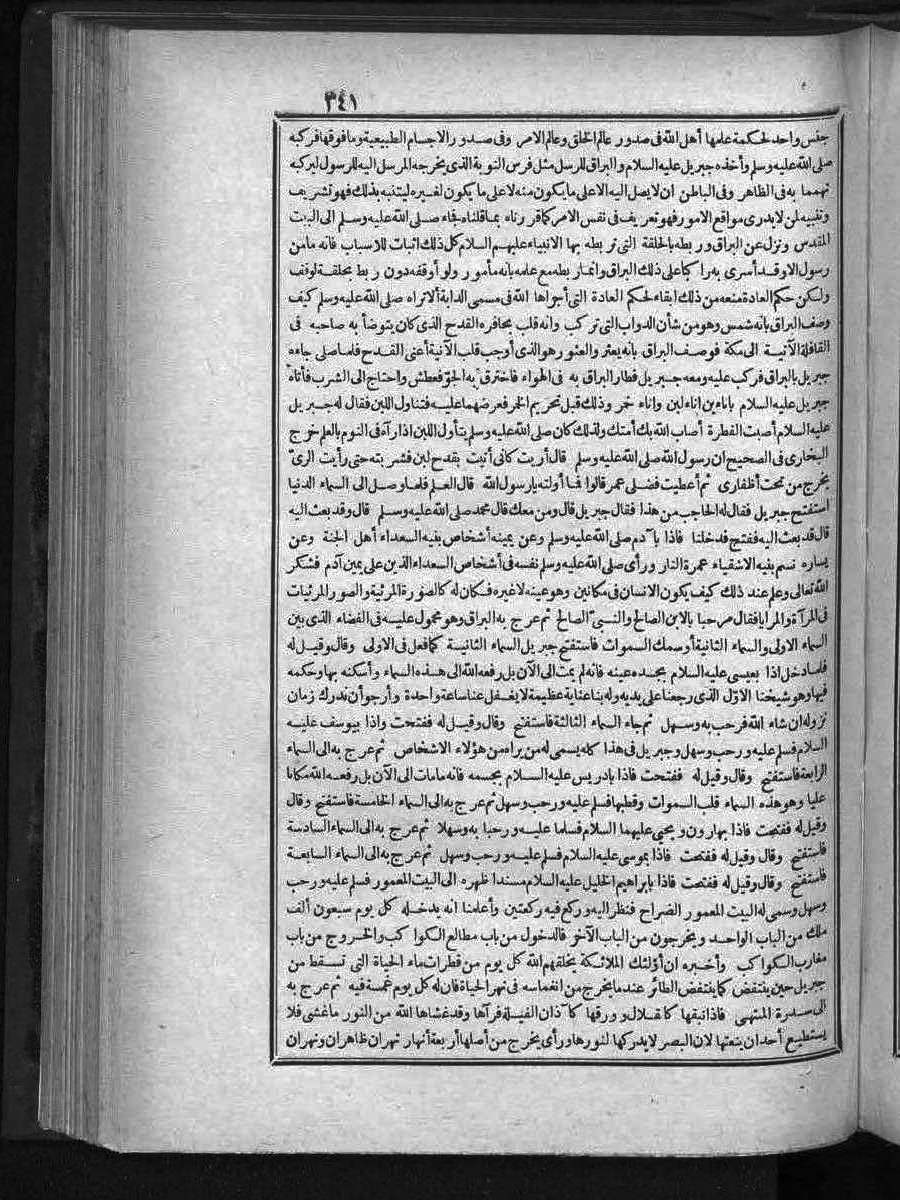 ٣٤١
جنس واحد لحكمة علمها أهل الله فى صدور عالم الخلق وعالم الامر وفى صدور الاجسام الطبيعية وما فوقها فركبه
صلى الله عليه وسلم وأخذه جبريل عليه السلام والبراق للرسل مثل فرس النوبة الذى يخرجه المرسل اليه للرسول ليركبه
تهمما به فى الظاهر وفى الباطن ان لا يصل اليه الا على ما يكون منه لا على ما يكون لغيره ليتنبه بذلك فهو تشريف
وتنبيه لمن لا يدرى مواقع الامور فهو تعريف فى نفس الامر كما قررناه بما قلناه فجاء صلى الله عليه وسلم الى البيت
المقدس ونزل عن البراق وربطه بالحلقة التى تربطه بها الانبياء عليهم السلام كل ذلك اثبات للاسباب فانه ما من
رسول الا وقد أسرى به راكبا على ذلك البراق وانما ربطه مع علمه بانه مأمور ولو أوقفه دون ربط بحلقة لوقف
ولكن حكم العادة منعه من ذلك ابقاء لحكم العادة التى أجراها الله فى مسمى الدابة ألا تراه صلى الله عليه وسلم كيف
وصف البراق بانه شمس وهو من شأن الدواب التى تركب وانه قلب بحافره القدح الذى كان يتوضأ به صاحبه فى
القافلة الآتية الى مكة فوصف البراق بانه يعثر والعثور هو الذى أوجب قلب الآنية أعنى القدح فلما صلى جاءه
جبريل بالبراق فركب عليه ومعه جبريل فطار البراق به فى الهواء فاخترق به الجوّ فعطش واحتاج الى الشرب فأتاه
جبريل عليه السلام باناءين اناء لبن واناء خمر وذلك قبل تحريم الخمر فعرضهما عليه فتناول اللبن فقال له جبريل
عليه السلام أصبت الفطرة أصاب الله بك أمتك ولذلك كان صلى الله عليه وسلم يتأول اللبن اذا رآه فى النوم بالعلم خرج
البخارى فى الصحيح ان رسول الله صلى الله عليه وسلم قال أريت كانى أتيت بقدح لبن فشربته حتى رأيت الرىّ
يخرج من تحت أظفارى ثم أعطيت فضلى عمر قالوا فما أولته يا رسول الله قال العلم فلما وصل الى السماء الدنيا
استفتح جبريل فقال له الحاجب من هذا فقال جبريل قال ومن معك قال محمد صلى الله عليه وسلم قال وقد بعث اليه
قال قد بعث اليه ففتح فدخلنا فاذا بآدم صلى الله عليه وسلم وعن يمينه أشخاص بنيه السعداء أهل الجنة وعن
يساره نسم بنيه الاشقياء عمرة النار ورأى صلى الله عليه وسلم نفسه فى أشخاص السعداء الذين على يمين آدم فشكر
الله تعالى وعلم عند ذلك كيف يكون الانسان فى مكانين وهو عينه لا غيره فكان له كالصورة المرئية والصور المرئيات
فى المرآة والمرايا فقال مرحبا بالابن الصالح والنبىّ الصالح ثم عرج به البراق وهو محمول عليه فى الفضاء الذى بين
السماء الاولى والسماء الثانية أو سمك السموات فاستفتح جبريل السماء الثانية كما فعل فى الاولى وقال وقيل له
فلما دخل اذا بعيسى عليه السلام بجسده عينه فانه لم يمت الى الآن بل رفعه الله الى هذه السماء وأسكنه بها وحكمه
فيها وهو شيخنا الاوّل الذى رجعنا على يديه وله بنا عناية عظيمة لا يغفل عنا ساعة واحدة وأرجو أن ندرك زمان
نزوله ان شاء الله فرحب به وسهل ثم جاء السماء الثالثة فاستفتح وقال وقيل له ففتحت واذا بيوسف عليه
السلام فسلم عليه ورحب وسهل وجبريل فى هذا كله يسمى له من يراه من هؤلاء الاشخاص ثم عرج به الى السماء
الرابعة فاستفتح وقال وقيل له ففتحت فاذا بادريس عليه السلام بجسمه فانه ما مات الى الآن بل رفعه الله مكانا
عليا وهو هذه السماء قلب السموات وقطبها فسلم عليه ورحب وسهل ثم عرج به الى السماء الخامسة فاستفتح وقال
وقيل له ففتحت فاذا بهارون ويحيى عليهما السلام فسلما عليه ورحبا به وسهلا ثم عرج به الى السماء السادسة
فاستفتح وقال وقيل له ففتحت فاذا بموسى عليه السلام فسلم عليه ورحب وسهل ثم عرج به الى السماء السابعة
فاستفتح وقال وقيل له ففتحت فاذا بابراهيم الخليل عليه السلام مسندا ظهره الى البيت المعمور فسلم عليه ورحب
وسهل وسمى له البيت المعمور الضراح فنظر اليه وركع فيه ركعتين وأعلمنا انه يدخله كل يوم سبعون ألف
ملك من الباب الواحد ويخرجون من الباب الآخر فالدخول من باب مطالع الكواكب والخروج من باب
مغارب الكواكب وأخبره ان أولئك الملائكة يخلقهم الله كل يوم من قطرات ماء الحياة التى تسقط من
جبريل حين ينتفض كما ينتفض الطائر عندما يخرج من انغماسه فى نهر الحياة فان له كل يوم غمسة فيه ثم عرج به
الى سدرة المنتهى فاذا نبقها كالقلال وورقها كآذان الفيلة فرآها وقد غشاها الله من النور ما غشى فلا
يستطيع أحد ان ينعتها لان البصر لا يدركها لنورها ورأى يخرج من أصلها أربعة أنهار نهران ظاهران ونهران